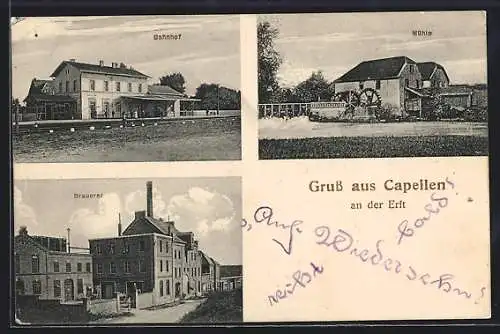 Bahnhof
Mühle
Brauerei
Gruß aus Capellen
an der Erft
Auf Wiedersehn!
recht bald